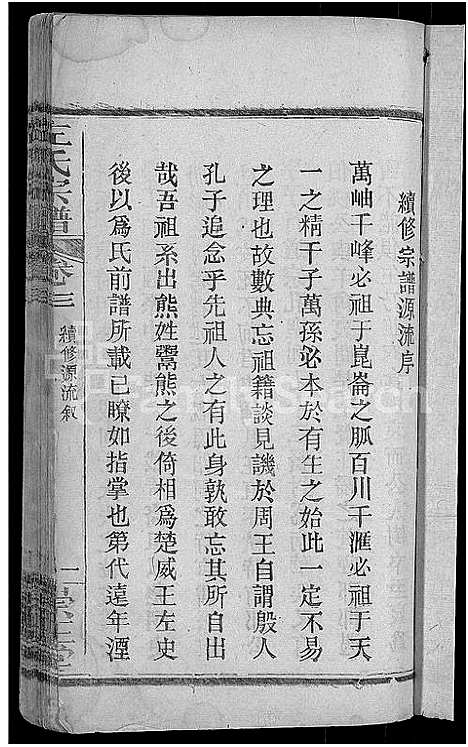 續修宗譜源流序
萬岫千峰必祖于崑崙之脈百川千滙必祖于天
一之精千子萬孫必本於有生之始此一定不易
之理也故數典忘祖籍談見譏於周王自謂殷人
孔子追念乎先祖人之有此身孰敢忘其所自出
哉吾祖系出熊姓鬻熊之後倚相爲楚威王左史
後以爲氏前譜所載已瞭如指掌也第代遠年湮
左氏宗譜
卷三
續修源流敘
一
FamilySearch